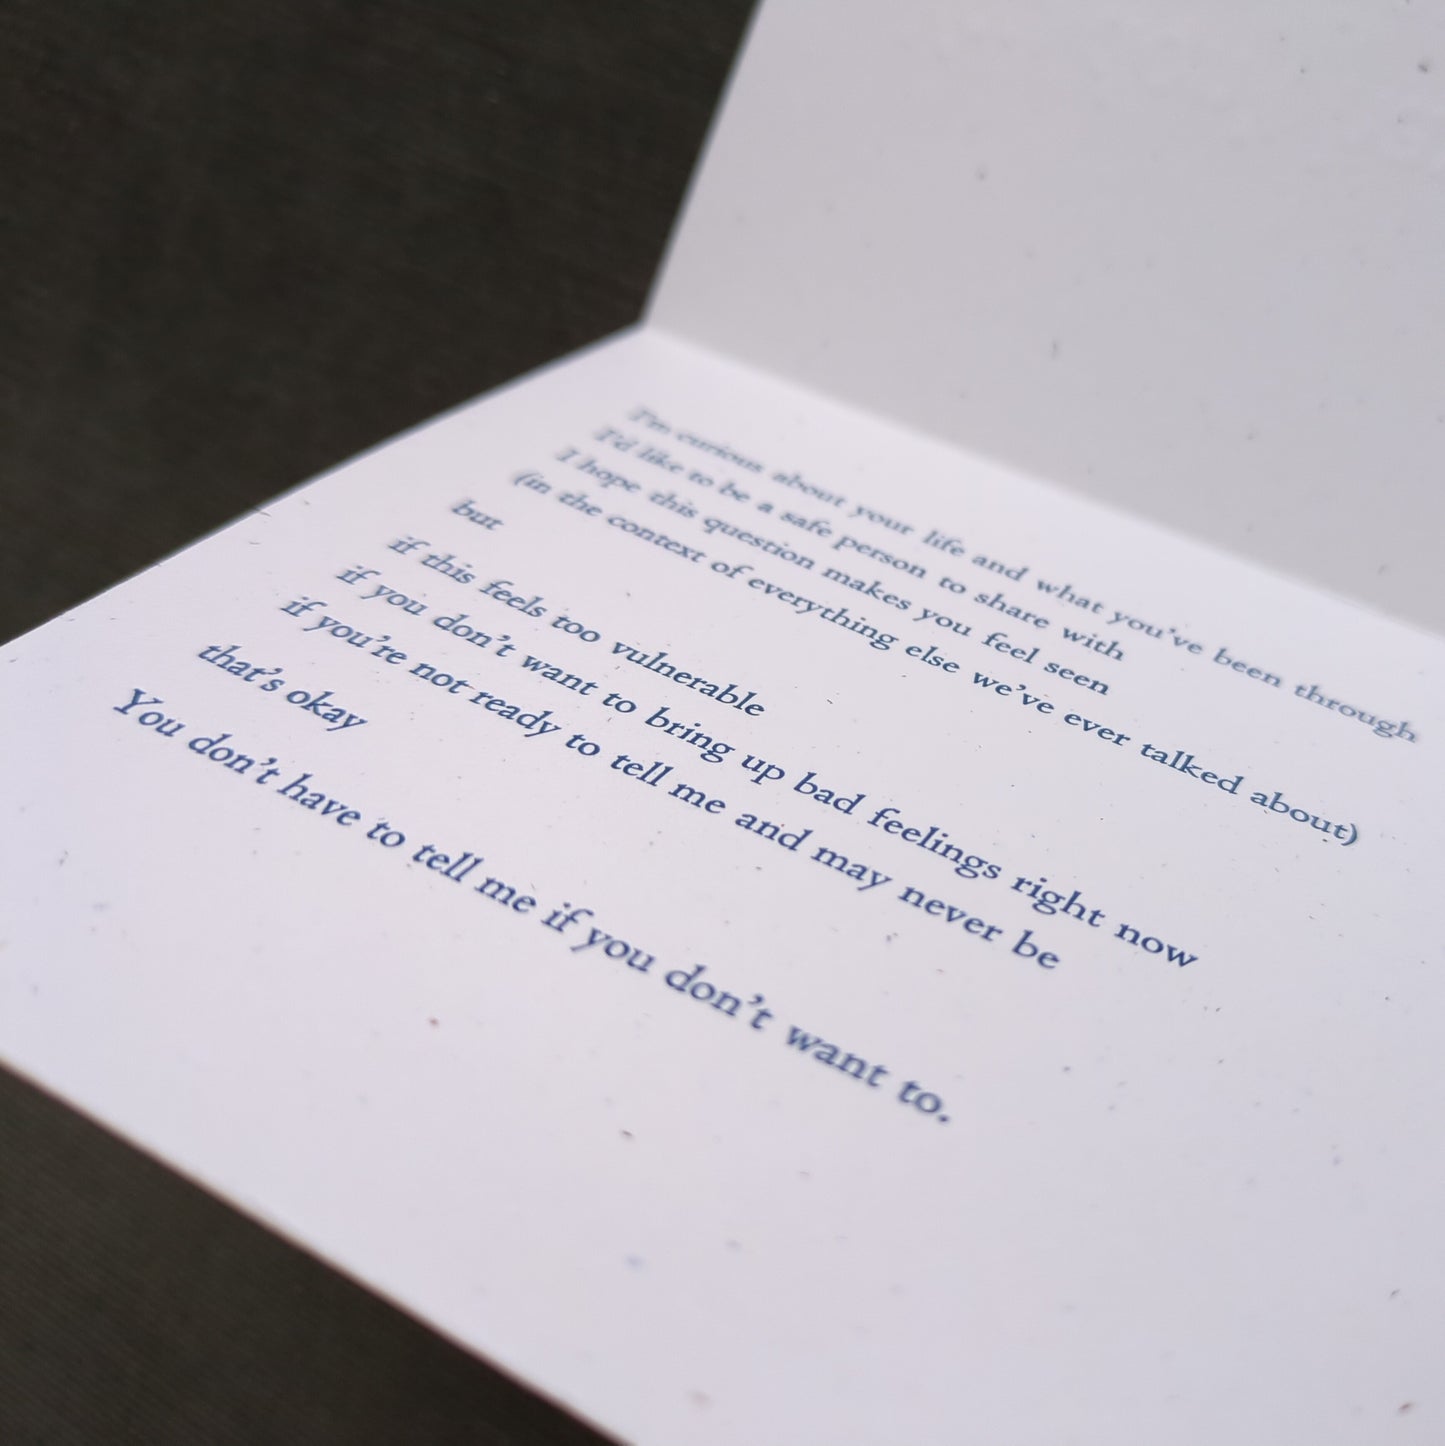 I'm curious about your life and what you've been through
I'd like to be a safe person to share with
I hope this question makes you feel seen
(in the context of everything else we've ever talked about)
but
if this feels too vulnerable
if you don't want to bring up bad feelings right now
if you're not ready to tell me and may never be
that's okay
You don't have to tell me if you don't want to.